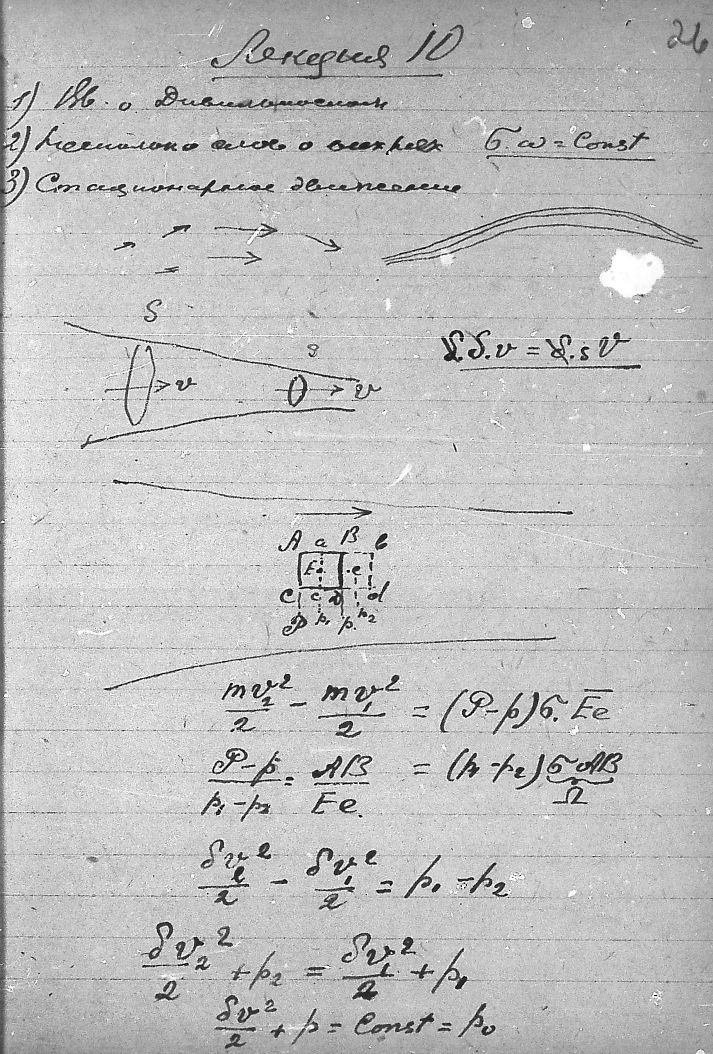 26
Лекция 10
1) о
2) Несколько слов о вихрях σ.ω = Const
3) Стационарное движение
S
s
v
v
δ.σ.v = δ.s V
A a B b
E e
C c D d
P p₁ p p₂
mv₂²/2 − mv₁²/2 = (P−p)σ.Ee
(P−p)/(p₁−p₂) = AB/Ee. = (p₁−p₂) σ AB
Ω
δv₂²/2 − δv₁²/2 = p₁ − p₂
δv₂²/2 + p₂ = δv₁²/2 + p₁
δv²/2 + p = Const = p₀